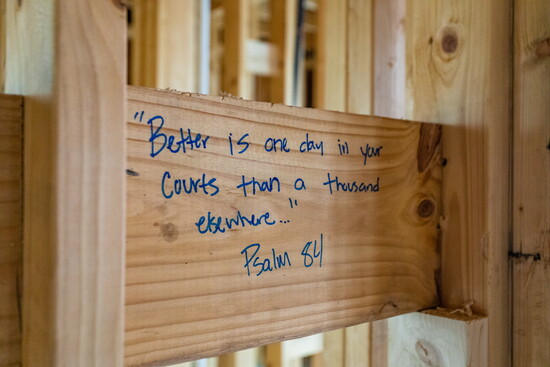 "Better is one day in your
Courts than a thousand
elsewhere..."
Psalm 84